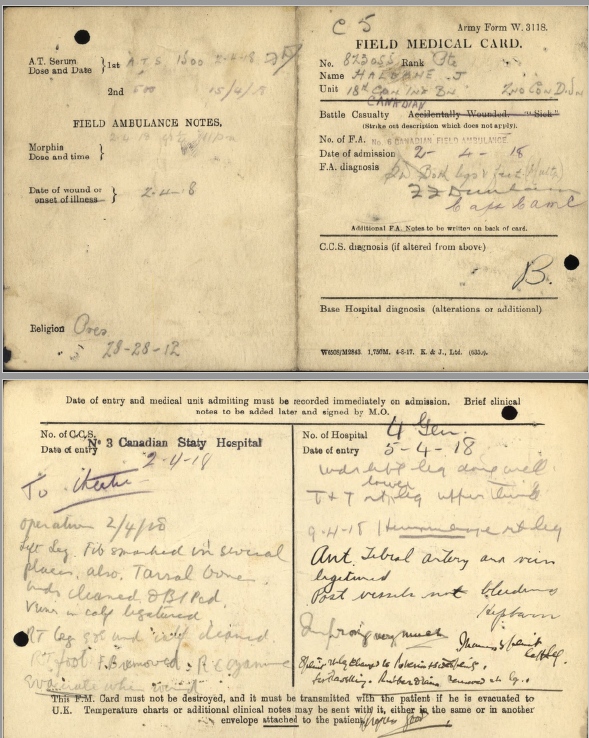 C 5
Army Form W. 3118.
FIELD MEDICAL CARD.
A.T. Serum
Dose and Date
1st A.T.S 1500 2-4-18
2nd 500 15/4/18
FIELD AMBULANCE NOTES.
Morphia
Dose and time
Date of wound or
onset of illness
2-4-18
Religion Pres
28-28-12
No. 823055 Rank Pte
Name HALDANE. J
Unit 18th CON INF BN 2ND CON DIVN
CANADIAN
Battle Casualty Accidentally Wounded. "Sick"
(Strike out description which does not apply).
No. of F.A. No 6 CANADIAN FIELD AMBULANCE
Date of admission 2- 4- 18
F.A. diagnosis Both legs & feet
Capt CAMC
Additional F.A. Notes to be written on back of card.
C.C.S. diagnosis (if altered from above)
B.
Base Hospital diagnosis (alterations or additional)
W6508/M2843 1,750M. 4-5-17. K. & J., Ltd.
Date of entry and medical unit admitting must be recorded immediately on admission. Brief clinical
notes to be added later and signed by M.O.
No. of C.C.S. No 3 Canadian Staty Hospital
Date of entry 2-4-18
To
operation 2/4/18
Left Leg. Tib smashed in several
places, also Tarsal bones.
wds cleaned & BIPed.
Veins in calf ligatured
RT leg wd cleaned.
RT foot F.B removed.
Evacuate when
No. of Hospital 4 Gen.
Date of entry 5-4-18
wds left leg doing well
lower
T & T rt leg upper third
9-4-18 Haemorrhage rt leg
Ant. Tibial artery and vein
ligatured
Post vessels not bleeding
Hepburn
Improving very much
This F.M. Card must not be destroyed, and it must be transmitted with the patient if he is evacuated to
U.K. Temperature charts or additional clinical notes may be sent with it, either in the same or in another
envelope attached to the patient.